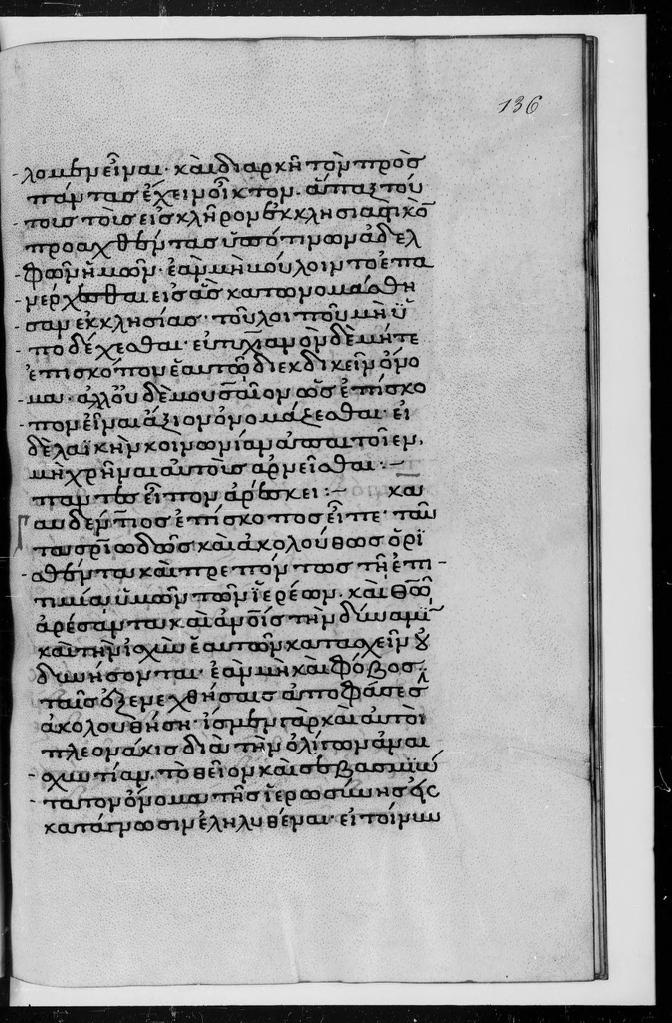 136
λομεν εἶναι· καὶ διαρκῆ τὸν πρὸς
πάντας ἔχειν οἶκτον. ἅπαξ τού
τοις τοῖς εἰς κλῆρον ἐκκλησιαστικὸ
προαχθέντας ὑπό τινων ἀδελ
φῶν ἡμῶν· ἐὰν μὴ βούλοιντο ἐπα
νέρχεσθαι εἰς ἃς κατωνομάσθη
σαν ἐκκλησίας· τοῦ λοιποῦ μὴ ὑ
ποδέχεσθαι· εὐτυχιανὸν δὲ μήτε
ἐπισκόπου ἑαυτῷ διεκδικεῖν ὄνο
μα· ἀλλ' οὐδὲ μουσαῖον ὡς ἐπίσκο
πον εἶναι ἄξιον ὀνομάζεσθαι· εἰ
δὲ λαϊκὴν κοινωνίαν ἀπαιτοῖεν,
μὴ χρῆναι αὐτοῖς ἀρνεῖσθαι :–
πάντες εἶπον ἀρέσκει :– και
Γαυδέντιος ἐπίσκοπος εἶπε· ταῦ
τα ὁριωδῶς καὶ ἀκολούθως ὁρι
σθέντα καὶ πρεπόντως τῇ ἐπι
τιμίᾳ ὑμῶν τῶν ἱερέων. καὶ θεῷ
ἀρέσαντα καὶ ἀνοῖς τὴν δύναμιν
καὶ τὴν ἰσχὺν ἑαυτῶν κατασχεῖν οὐ
δυνήσονται· ἐὰν μὴ καὶ φόβος
ταῖς ἐξενεχθήσαις ἀποφάσεσι
ἀκολουθήσῃ· ἴσμεν γὰρ καὶ αὐτοὶ
πλεονάκις διὰ τὴν ὀλίγων ἀναι
σχυντίαν. τὸ θεῖον καὶ σεβασμιώ
τατον ὄνομα τῆς ἱερωσύνης εἰς
κατάγνωσιν ἐληλυθέναι· εἰ τοίνυν